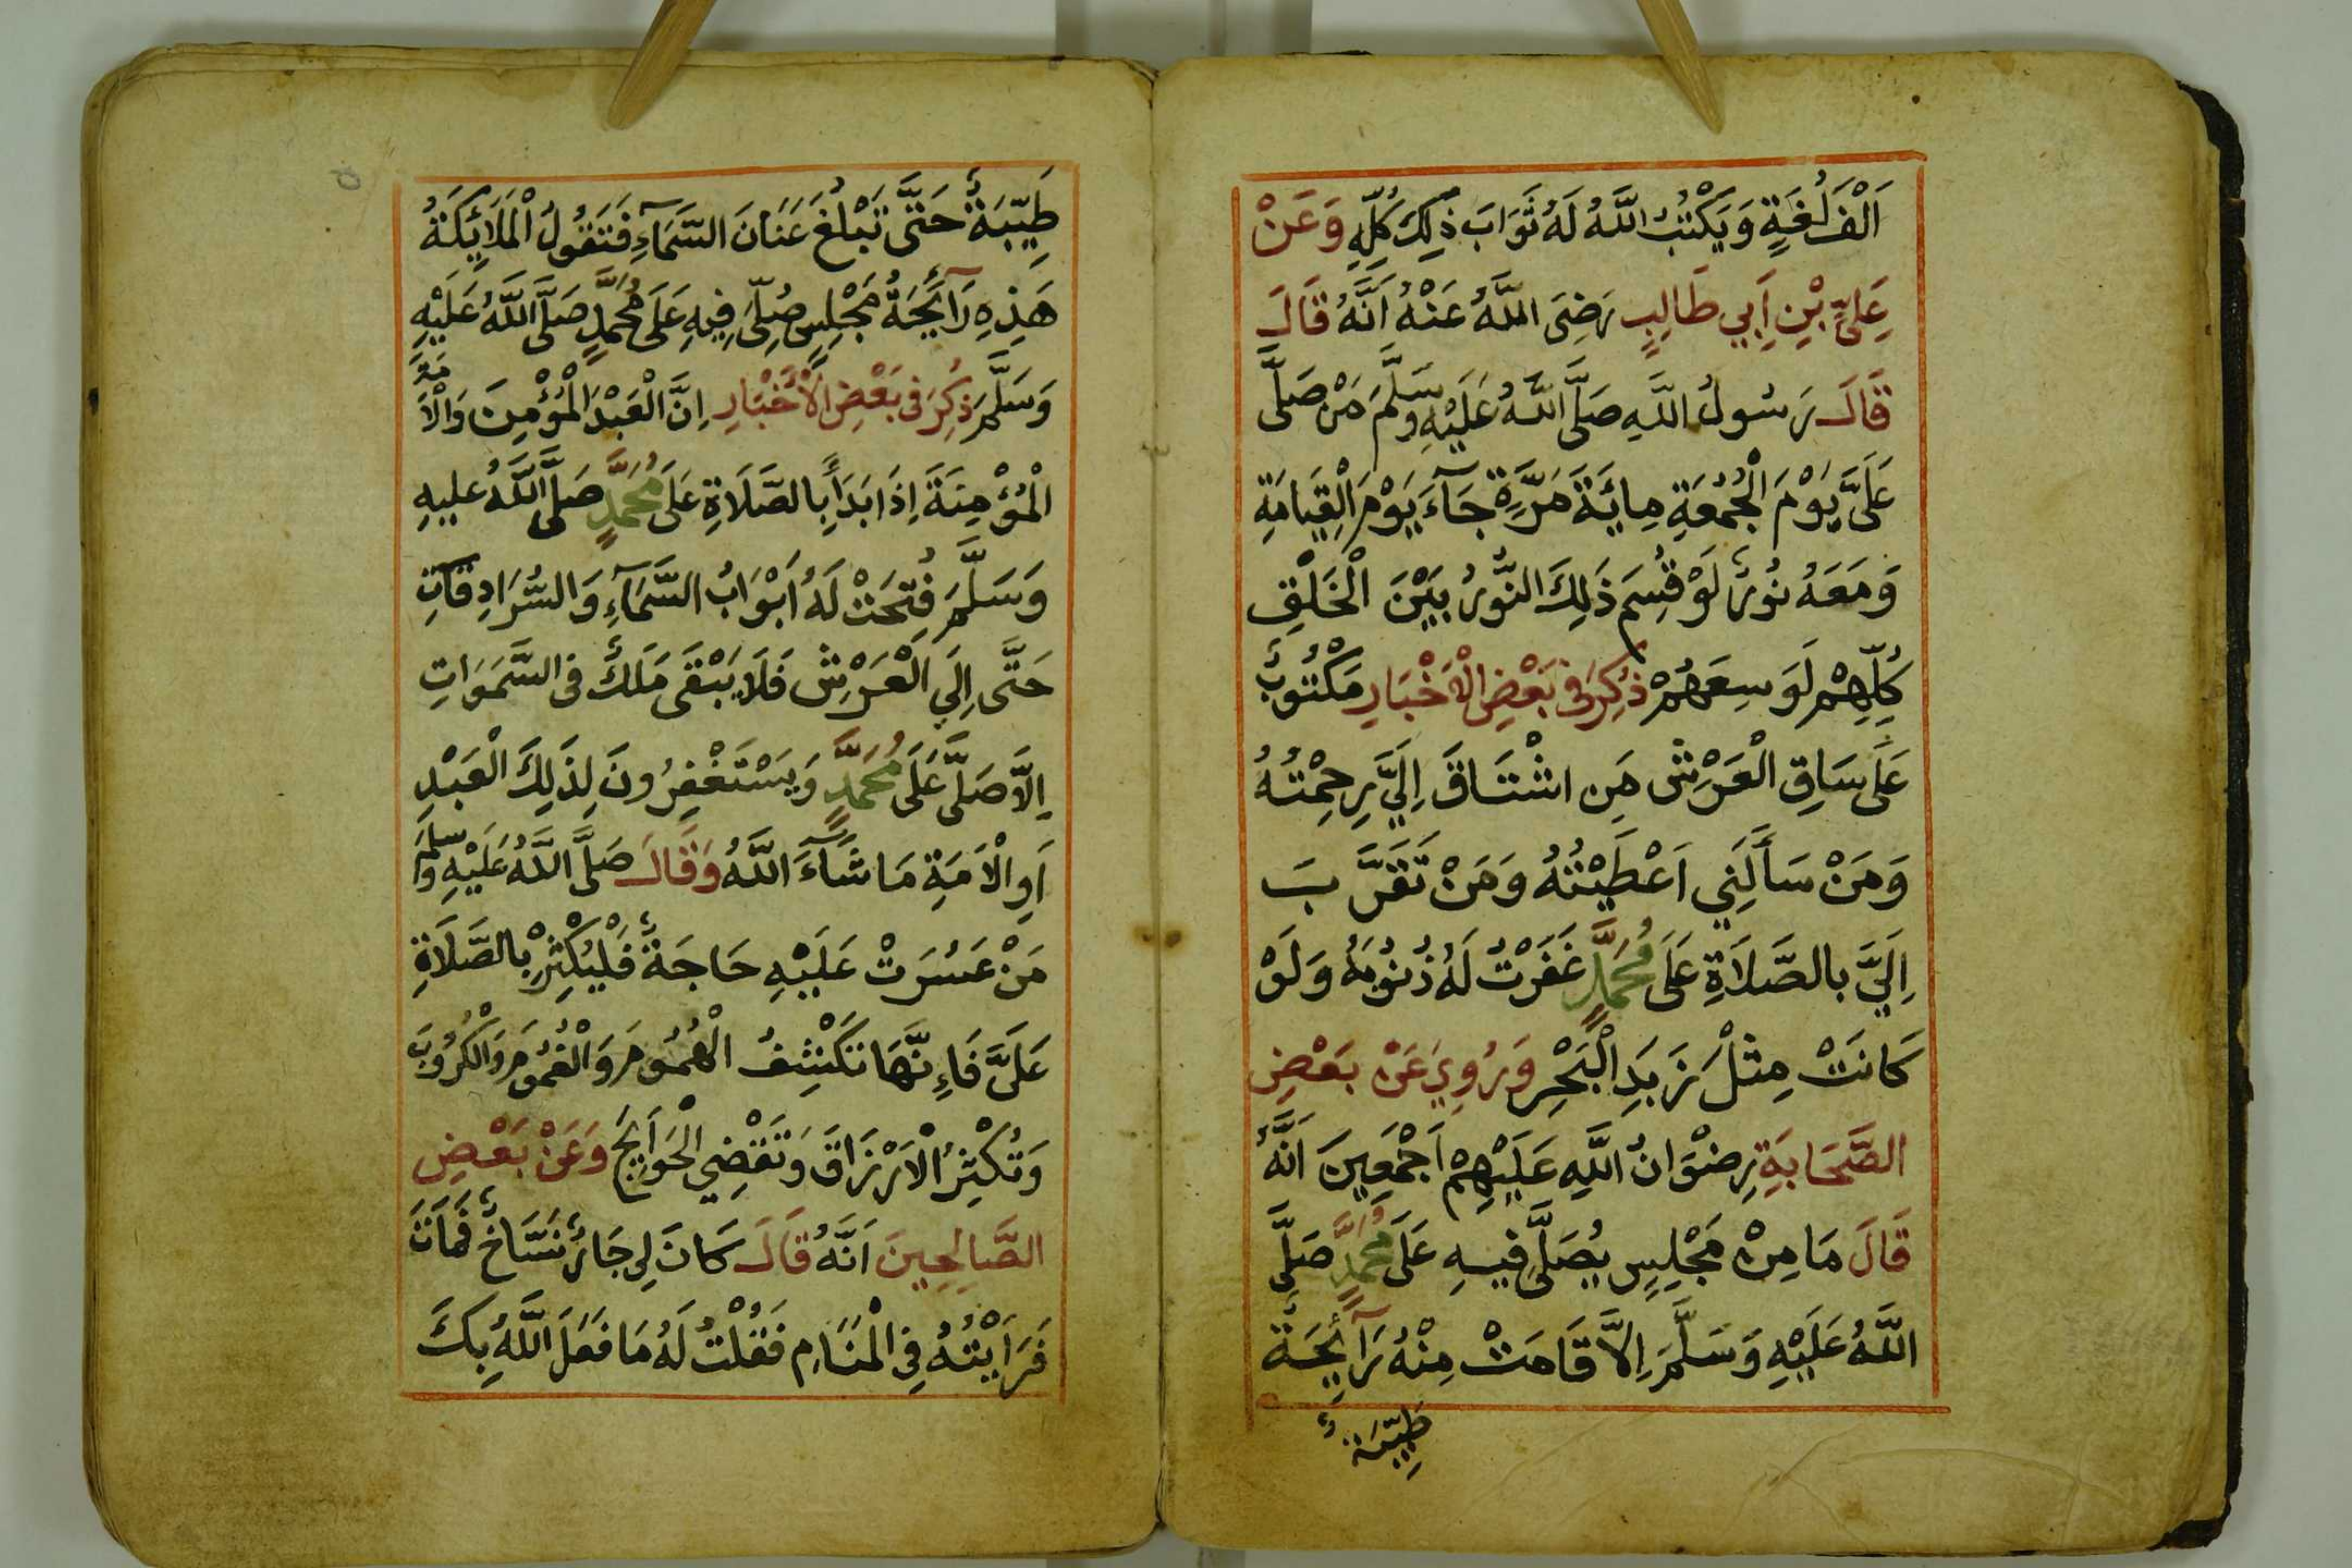 اَلْفَ لُغَةٍ وَيَكْتُبُ اللَّهُ لَهُ ثَوَابَ ذٰلِكَ كُلِّهِ وَعَنْ
عَلِيِّ بْنِ اَبِي طَالِبٍ رَضِيَ اللَّهُ عَنْهُ اَنَّهُ قَالَ
قَالَ رَسُولُ اللَّهِ صَلَّى اللَّهُ عَلَيْهِ وَسَلَّمَ مَنْ صَلَّى
عَلَيَّ يَوْمَ الْجُمُعَةِ مِايَةَ مَرَّةٍ جَآءَ يَوْمَ الْقِيَامَةِ
وَمَعَهُ نُورٌ لَوْ قُسِمَ ذَلِكَ النُّورُ بَيْنَ الْخَلْقِ
كُلِّهِمْ لَوَسِعَهُمْ ذُكِرَ فِى بَعْضِ الْاَخْبَارِ مَكْتُوبٌ
عَلَى سَاقِ الْعَرْشِ مَنِ اشْتَاقَ اِلَيَّ رَحِمْتُهُ
وَمَنْ سَأَلَنِي اَعْطَيْتُهُ وَمَنْ تَقَرَّبَ
اِلَيَّ بِالصَّلَاةِ عَلَى مُحَمَّدٍ غَفَرْتُ لَهُ ذُنُوبَهُ وَلَوْ
كَانَتْ مِثْلَ زَبَدِ الْبَحْرِ وَرُوِيَ عَنْ بَعْضِ
الصَّحَابَةِ رِضْوَانُ اللَّهِ عَلَيْهِمْ اَجْمَعِينَ اَنَّهُ
قَالَ مَا مِنْ مَجْلِسٍ يُصَلَّى فِيهِ عَلَى مُحَمَّدٍ صَلَّى
اللَّهُ عَلَيْهِ وَسَلَّمَ اِلَّا قَامَتْ مِنْهُ رَآئِحَةٌ
طَيِّبَةٌ
طَيِّبَةٌ حَتَّى تَبْلُغَ عَنَانَ السَّمَآءِ فَتَقُولُ الْمَلَايِكَةُ
هَذِهِ رَآئِحَةُ مَجْلِسٍ صُلِّىَ فِيهِ عَلَى مُحَمَّدٍ صَلَّى اللَّهُ عَلَيْهِ
وَسَلَّمَ ذُكِرَ فِى بَعْضِ الْاَخْبَارِ اِنَّ الْعَبْدَ الْمُؤْمِنَ وَالْاَمَةَ
الْمُؤْمِنَةَ اِذَا بَدَأَ بِالصَّلَاةِ عَلَى مُحَمَّدٍ صَلَّى اللَّهُ عليهِ
وَسَلَّمَ فُتِحَتْ لَهُ اَبْوَابُ السَّمَآءِ وَالسُّرَادِقَاتِ
حَتَّى اِلَى الْعَرْشِ فَلَا يَبْقَى مَلَكٌ فِى السَّمَوَاتِ
اِلَّا صَلَّى عَلَى مُحَمَّدٍ وَيَسْتَغْفِرُونَ لِذَلِكَ الْعَبْدِ
اَوِ الْاَمَةِ مَا شَآءَ اللَّهُ وَقَالَ صَلَّى اللَّهُ عَلَيْهِ وَسلم
مَنْ عَسُرَتْ عَلَيْهِ حَاجَةٌ فَلْيُكْثِرْ بِالصَّلَاةِ
عَلَيَّ فَاِنَّهَا تَكْشِفُ الْهُمُومَ وَالْغُمُومَ وَالْكُرُوبَ
وَتُكْثِرُ الْاَرْزَاقَ وَتَقْضِي الْحَوَايِجَ وَعَنْ بَعْضِ
الصَّالِحِينَ اَنَّهُ قَالَ كَانَ لِى جَارٌ نَسَّاخٌ فَمَاتَ
فَرَاَيْتُهُ فِي الْمَنَامِ فَقُلْتُ لَهُ مَا فَعَلَ اللَّهُ بِكَ